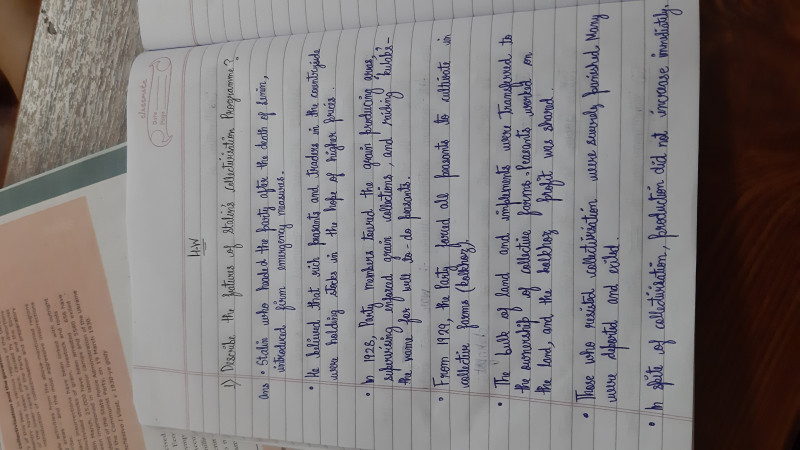 classmate
Date
Page
H.W
1) Describe the features of Stalin's collectivisation Programme?
Ans • Stalin who headed the party after the death of Lenin,
introduced firm emergency measures.
• He believed that rich peasants and traders in the countryside
were holding stocks in the hope of higher prices.
• In 1928, Party members toured the grain producing areas,
supervising enforced grain collections, and raiding 'kulaks' -
the name for well to-do peasants.
• From 1929, the Party forced all peasants to cultivate in
collective farms (kolkhoz).
• The bulk of land and implements were transferred to
the ownership of collective farms. Peasants worked on
the land, and the kolkhoz profit was shared.
• Those who resisted collectivisation were severely punished. Many
were deported and exiled.
• In spite of collectivisation, production did not increase immediately.